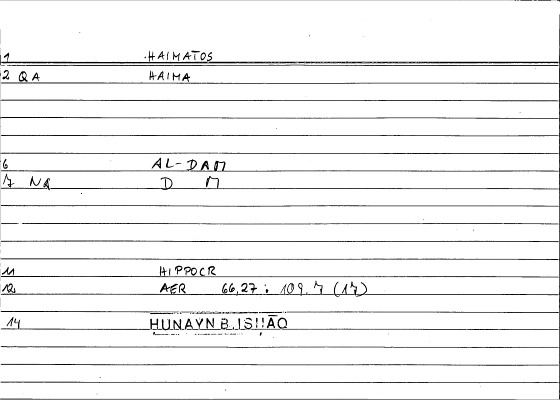 1 HAIMATOS
2 QA HAIMA
6 AL-DAM
7 NQ D M
11 HIPPOCR
12 AER 66,27 : 109.7 (17)
14 ḤUNAYN B. ISḤĀQ